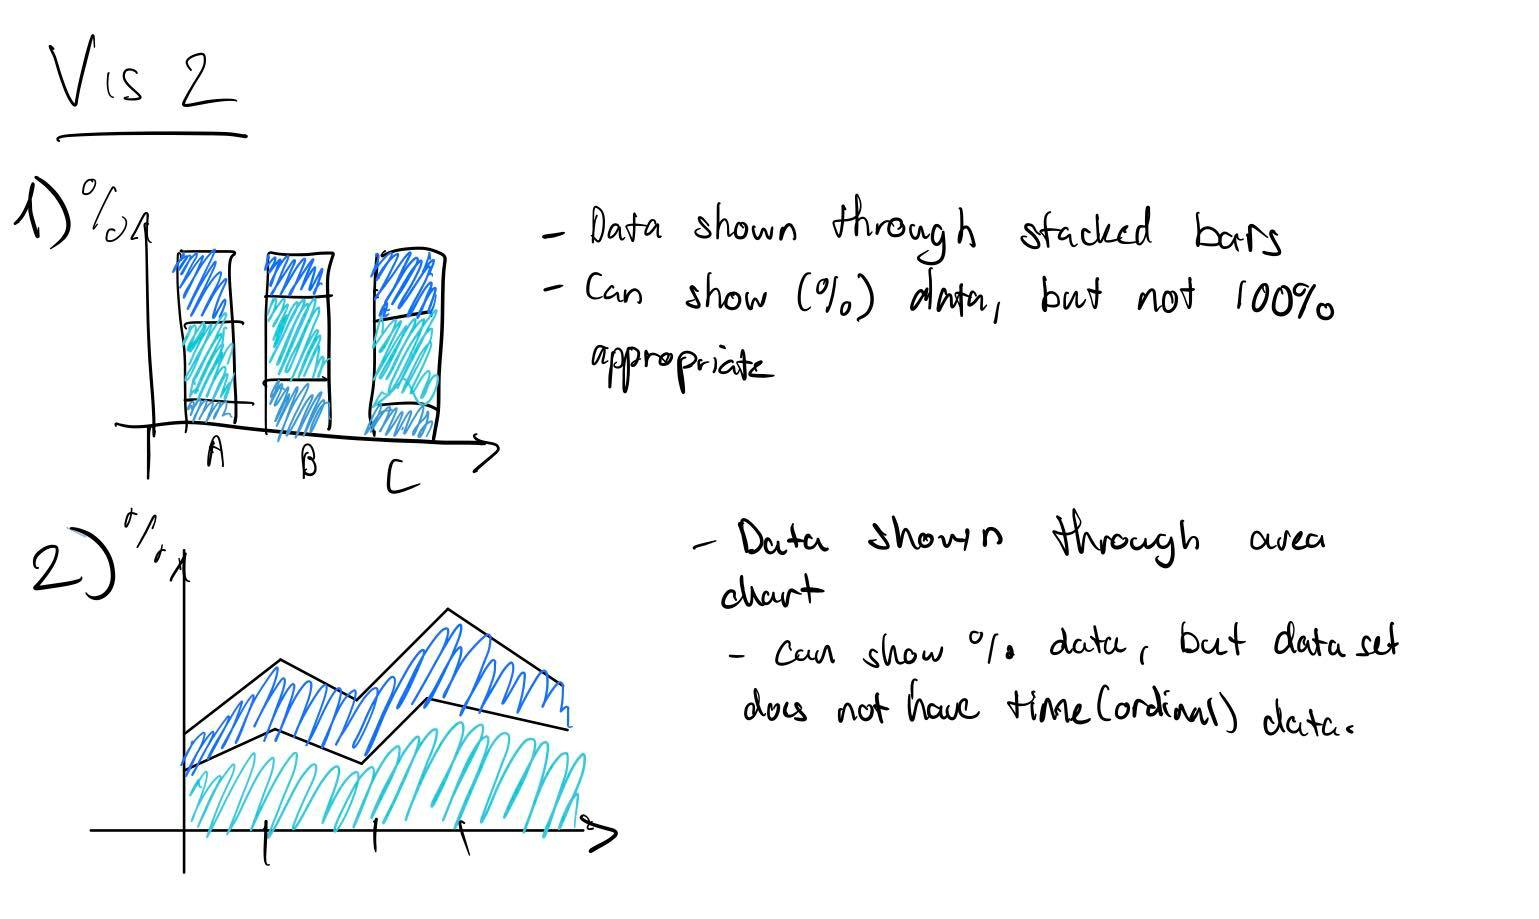 Vis 2
1) %
- Data shown through stacked bars
- Can show (%) data, but not 100%
appropriate
A B C
2) %
- Data shown through area
chart
- Can show % data, but data set
does not have time (ordinal) data.